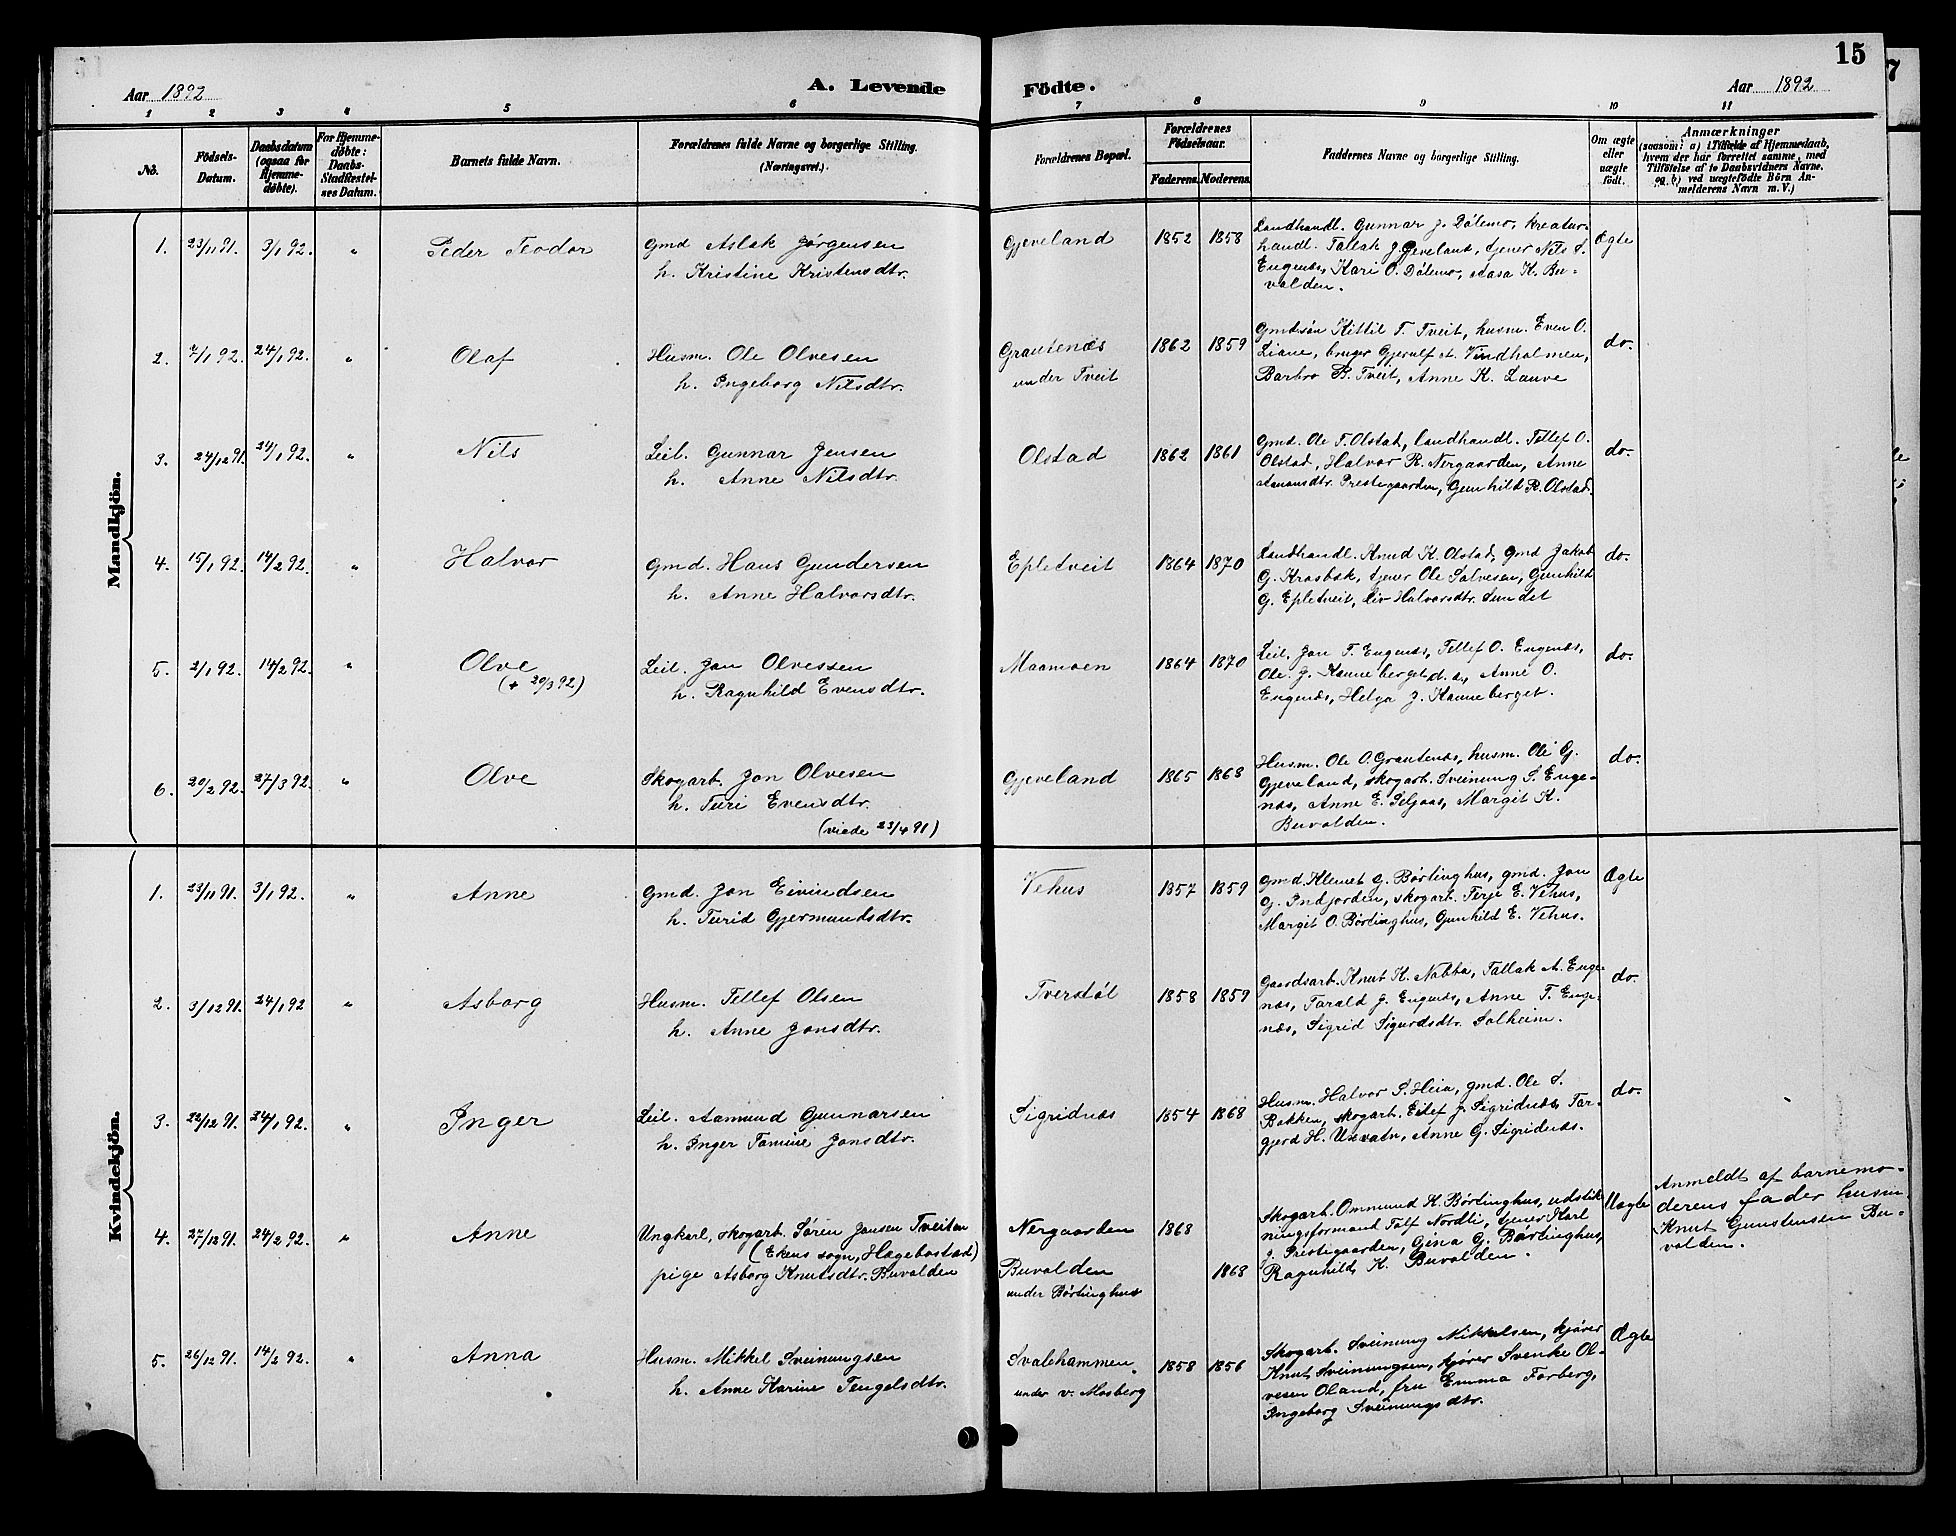 15
Aar 1892
A. Levende Födte.
Aar 1892
1 2 3 4 5 6 7 8 9 10 11
No.
Födsels-
Datum.
Daabsdatum
(ogsaa for
Hjemme-
döbte).
For Hjemme-
döbte:
Daabs-
Stadfæstel-
ses Datum.
Barnets fulde Navn.
Forældrenes fulde Navne og borgerlige Stilling.
(Næringsvei.)
Forældrenes Bopæl.
Forældrenes
Födselsaar.
Faderens. Moderens.
Faddernes Navne og borgerlige Stilling.
Om ægte
eller
uægte
födt.
Anmærkninger
(saasom: a) i Tilfælde af Hjemmedaab,
hvem der har forrettet samme, med
Tilföielse af to Daabsvidners Navne,
og b) ved uægtefödte Börn An-
melderens Navn m. V.)
Mandkjön.
1. 23/11 91. 3/1 92. " Peder Teodor
Gmd Aslak Jørgensen
h. Kristine Kristensdtr.
Gjeveland 1852 1858
Landhandl. Gunnar J. Dölemo, kreatur-
handl. Tallak J. Gjeveland, tjener Nils S.
Engenæs, Kari O. Dölemo, Aasa K. Bu-
valden.
Ægte
2. 7/1 92. 24/1 92. " Olaf
Husm. Ole Olvesen
h. Ingeborg Nilsdtr.
Grautenæs
under Tveit
1862 1859
Gmdssön Kittil T. Tveit, husm. Even O.
Liane, bruger Gjerulf A. Vindholmen,
Barbro B. Tveit, Anne K. Lauve
do.
3. 24/12 91. 24/1 92. " Nils
Leil. Gunnar Jensen
h. Anne Nilsdtr.
Olstad 1862 1861
Gmd. Ole T. Olstad, landhandl. Tellef O.
Olstad, Halvor R. Nergaarden, Anne
Aanonsdtr. Prestegaarden, Gunhild R. Olstad.
do.
4. 15/1 92. 14/2 92. " Halvor
Gmd. Hans Gundersen
h. Anne Halvorsdtr.
Epletveit 1864 1870
Landhandl. Knud K. Olstad, gmd Jakob
G. Krosbæk, tjener Ole Salvesen, Gunhild
G. Epletveit, Liv Halvorsdtr. Sundet
do.
5. 2/1 92. 14/2 92. " Olve
(+ 20/3 92)
Leil. Jon Olvessen
h. Ragnhild Evensdtr.
Maamoen 1864 1870
Leil. Jon T. Engenæs, Tellef O. Engenæs,
Ole J. Kanneberget d. a., Anne O.
Engenæs, Helga J. Kanneberget.
do.
6. 20/2 92. 27/3 92. " Olve
Skogarb. Jon Olvesen
h. Turi Evensdtr.
(viede 23/4 91)
Gjeveland 1865 1868
Husm. Ole O. Grautenæs, husm. Ole G.
Gjeveland, skogarb. Sveinung S. Enge-
næs, Anne E. Seljaas, Margit K.
Buvolden.
do.
Kvindekjön.
1. 23/11 91. 3/1 92. " Anne
Gmd. Jon Eivindsen
h. Turid Gjermundsdtr.
Vehus 1857 1859
Gmd. Klemet G. Börtinghus, gmd. Jon
G. Indjorden, skogarb. Terje E. Vehus,
Margit O. Börtinghus, Gunhild E. Vehus.
Ægte
2. 3/12 91. 24/1 92 " Asborg
Husm. Tellef Olsen
h. Anne Jonsdtr.
Tverstöl 1858 1859
Gaardsarb. Knut K. Nabba, Tallak A. Enge-
næs, Tarald J. Engenæs, Anne T. Enge-
næs, Sigrid Sigurdsdtr. Solheim.
do.
3. 22/12 91. 24/1 92. " Inger
Leil. Aamund Gunnarsen
h. Inger Tomine Jonsdtr.
Sigridnæs 1854 1868
Husm. Halvor S. Heia, gmd. Ole S.
Bakken, skogarb. Eilef J. Sigridnæs, Tar-
gjerd H. Uxvatn, Anne G. Sigridnæs.
do.
4. 27/12 91. 24/2 92. " Anne
Ungkarl, skogarb. Sören Jansen Tveiten
(Ekens sogn, Hægebostad)
pige Asborg Knutsdtr. Buvolden
Nergaarden 1868
Buvolden 1868
under Börtinghus
Skogarb. Ommund H. Börtinghus, udstik-
ningsformand Tolf Nordli, tjener Karl
J. Prestegaarden, Gina G. Börtinghus,
Ragnhild K. Buvolden.
Uægte
Anmeldt af barnemo-
derens fader husm.
Knut Gunstensen Bu-
volden.
5. 26/12 91. 14/2 92. " Anna
Husm. Mikkel Sveinungsen
h. Anne Karine Tengelsdtr.
Svalehammen
under v. Mosberg
1858 1856
Skogarb. Sveinung Mikkelsen, kjörer
Knut Sveinungsen, kjörer Svenke Ol-
vesen Oland, fru Emma Forberg,
Ingeborg Sveinungsdtr.
Ægte